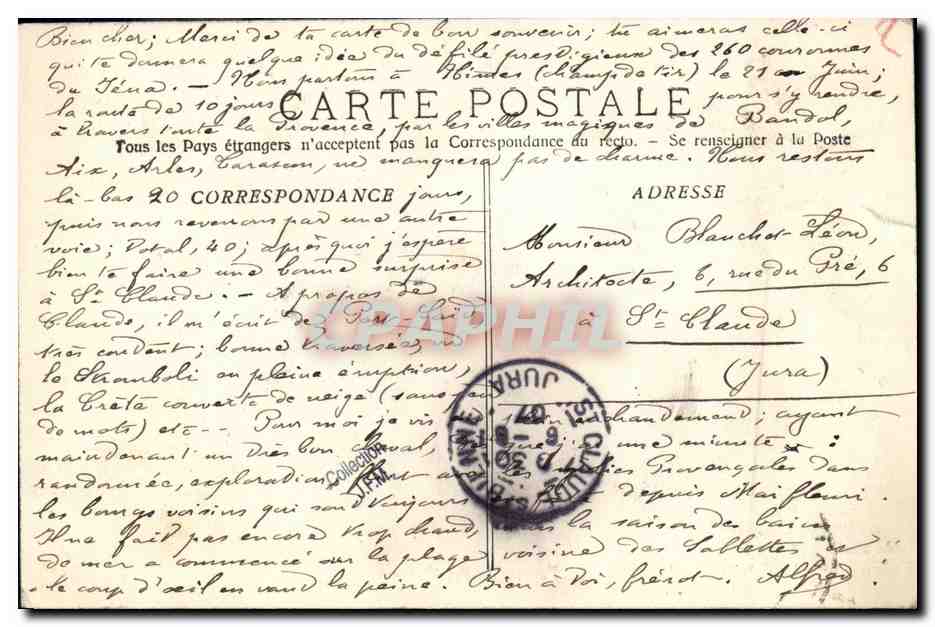 Bien cher; Merci de ta carte de bon souvenir; tu aimeras celle-ci
qui te donnera quelque idée du défilé prestigieux des 260 couronnes
du Iéna. — Nous partons à Nîmes (champ de tir) le 21 Juin;
la route de 10 jours pour s'y rendre,
CARTE POSTALE
à travers toute la Provence, par les villes magiques de Bandol,
Tous les Pays étrangers n'acceptent pas la Correspondance au recto. - Se renseigner à la Poste
Aix, Arles, Tarascon, ne manquera pas de charme. Nous restons
là-bas 20 jours,
CORRESPONDANCE
puis nous revenons par une autre
voie; Total, 40; après quoi j'espère
bien te faire une bonne surprise
à St Claude. — A propos de
Claude, il m'écrit de Port Saïd
très content; bonne traversée, vu
le Stromboli en pleine éruption,
la Crète couverte de neige (sans
de mots) etc — Pour moi je vis chaudement; ayant
maintenant un très bon cheval, une minute :
randonnée, exploration Provençales dans
les bourgs voisins qui sont toujours depuis Mai fleuri.
Il ne fait pas encore trop chaud, la saison des bains
de mer a commencé sur la plage voisine des Sablettes et
le coup d'œil en vaut la peine. Bien à Toi, frérot. Alfred.
ADRESSE
Monsieur Blanchot Léon,
Architecte, 6, rue du Pré, 6
à St Claude
(Jura)
APAPHIL
ST CLAUDE
JURA
Collection
J.F.M.